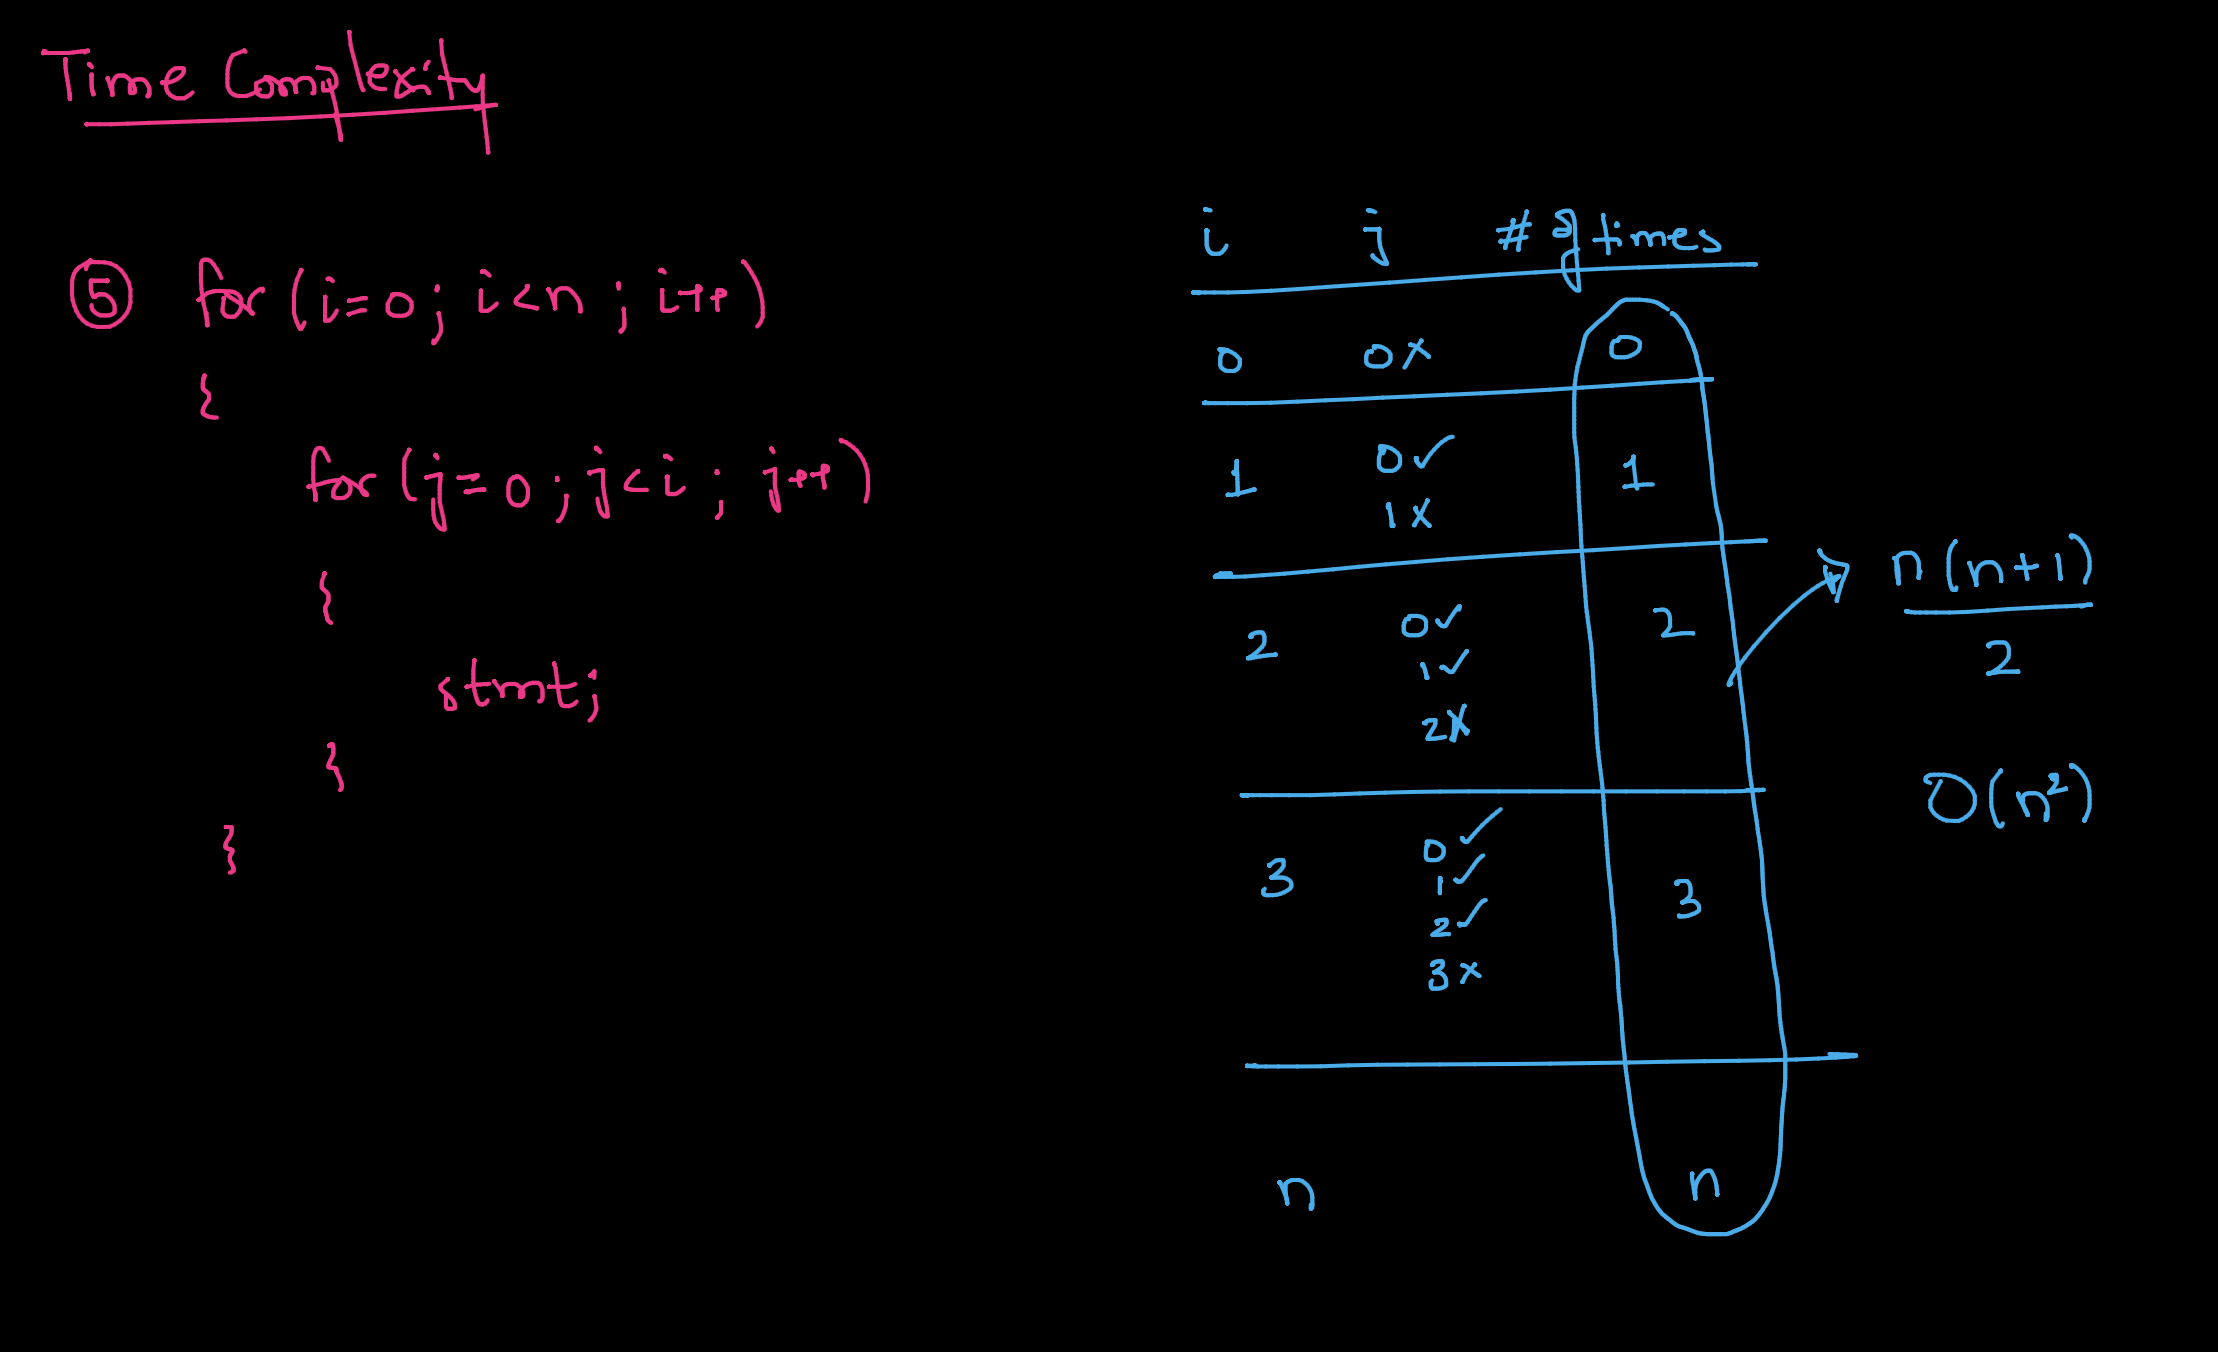 Time Complexity
⑤ for (i=0; i<n ; i++)
{
for (j=0 ; j<i ; j++)
{
stmt;
}
}
i j # of times
0 0x 0
1 0✓ 1
1x
2 0✓ 2
1✓
2x
3 0✓ 3
1✓
2✓
3x
n n
n(n+1)
2
O(n²)